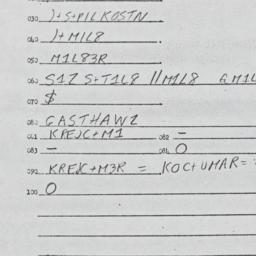 030 )+S+PILKOSTN
040 )+MIL8
050 M1L83R
060 S1Z S+T1L8 //M1L8 GM1L
070 $
080 GASTHAWZ
081 KREJC+M1 082 –
083 – 084 O
090 KREJC+M3R = KOC+UMAR=
100 O